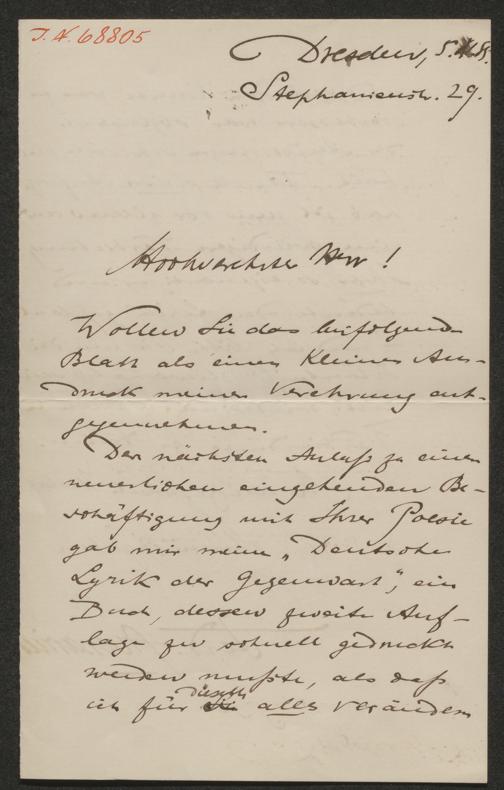 I. N. 68805
Dresden, 5.
Stephanienstr. 29.
Hochverehrter Herr!
Wollen Sie das beifolgende
Blatt als einen kleinen Aus-
druck meiner Verehrung ent-
gegennehmen.
Den nächsten Anlaß zu einer
neuerlichen eingehenden Be-
schäftigung mit Ihrer Poesie
gab mir meine „Deutsche
Lyrik der Gegenwart“, ein
Buch, dessen zweite Auf-
lage zu schnell gedruckt
werden mußte, als daß
ich für dieselbe alles verändern